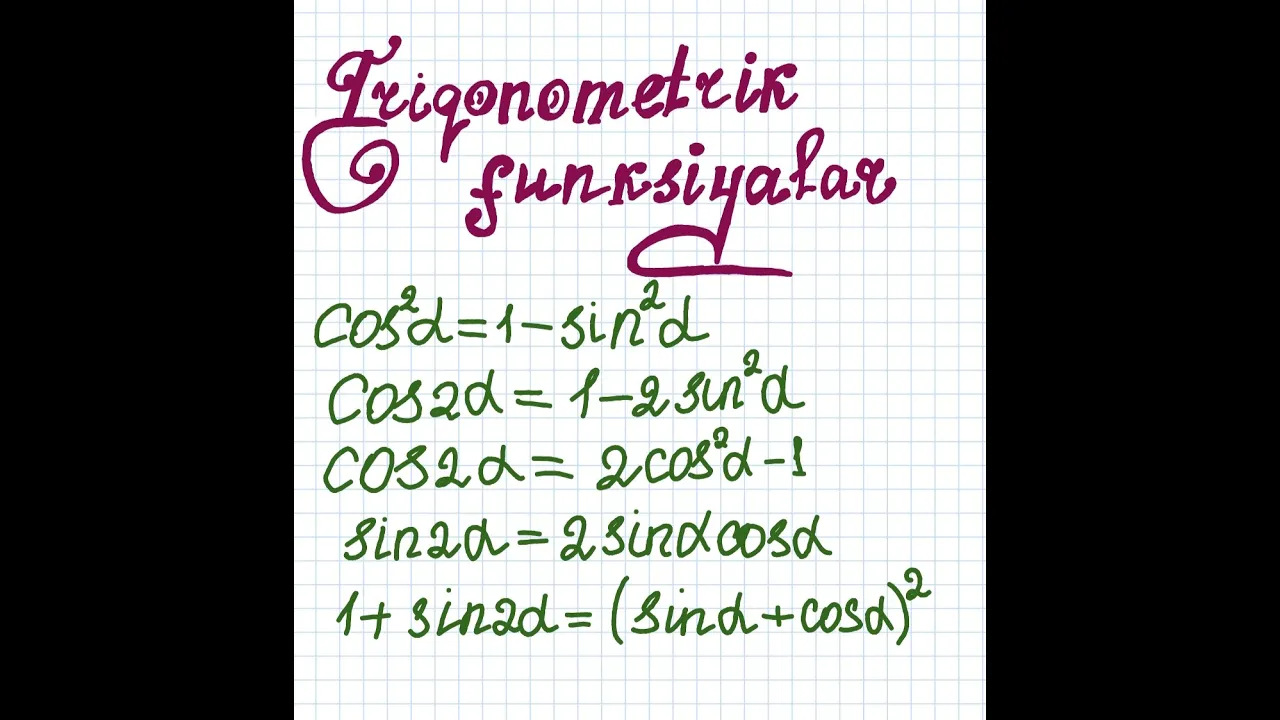 Trigonometrik
funksiyalar
cos²α=1-sin²α
cos2α=1-2sin²α
cos2α=2cos²α-1
sin2α=2sinαcosα
1+sin2α=(sinα+cosα)²